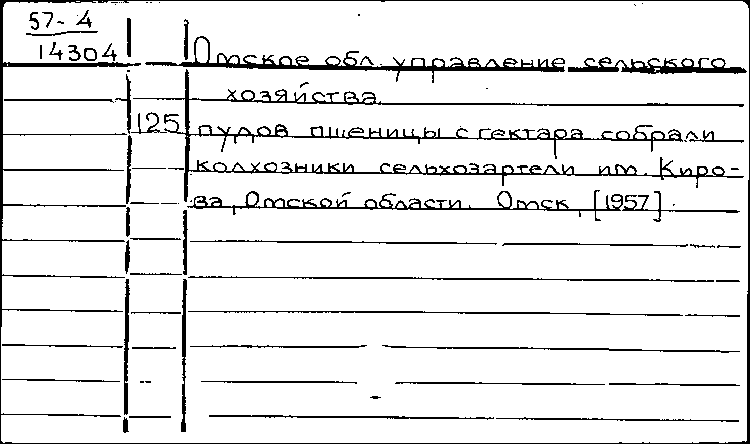 57-4
14304
Омское обл. управление сельского
хозяйства.
125 пудов пшеницы с гектара собрали
колхозники сельхозартели им. Киро-
ва, Омской области. Омск, [1957].